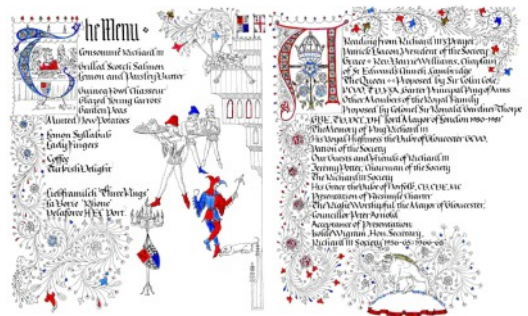 The Menu
Consommé Richard III
Grilled Scotch Salmon
Lemon and Parsley Butter
Guinea Fowl Chasseur
Glazed Young Carrots
Garden Peas
Minted New Potatoes
Lemon Syllabub
Lady Fingers
Coffee
Turkish Delight
Liebfraumilch "Three Kings"
Delaforce Port
A Reading from Richard III's Prayer,
Patrick Bacon, President of the Society
Grace - Rev. Barrie Williams, Chaplain
of St Edmunds Church, Cambridge
The Queen - Proposed by Sir Colin Cole,
Garter Principal King of Arms
Other Members of the Royal Family
Proposed by Colonel Sir Ronald Gardner-Thorpe
Lord Mayor of London 1980-1981
The Memory of King Richard III
His Royal Highness the Duke of Gloucester GCVO,
Patron of the Society
Our Guests and Friends of Richard III
Jeremy Potter, Chairman of the Society
The Richard III Society
His Grace the Duke of Norfolk, CB, CBE, MC
Presentation of Facsimile Charter
The Right Worshipful the Mayor of Gloucester,
Councillor Peter Arnold
Acceptance of Presentation
Isolde Wigram, Hon. Secretary,
Richard III Society